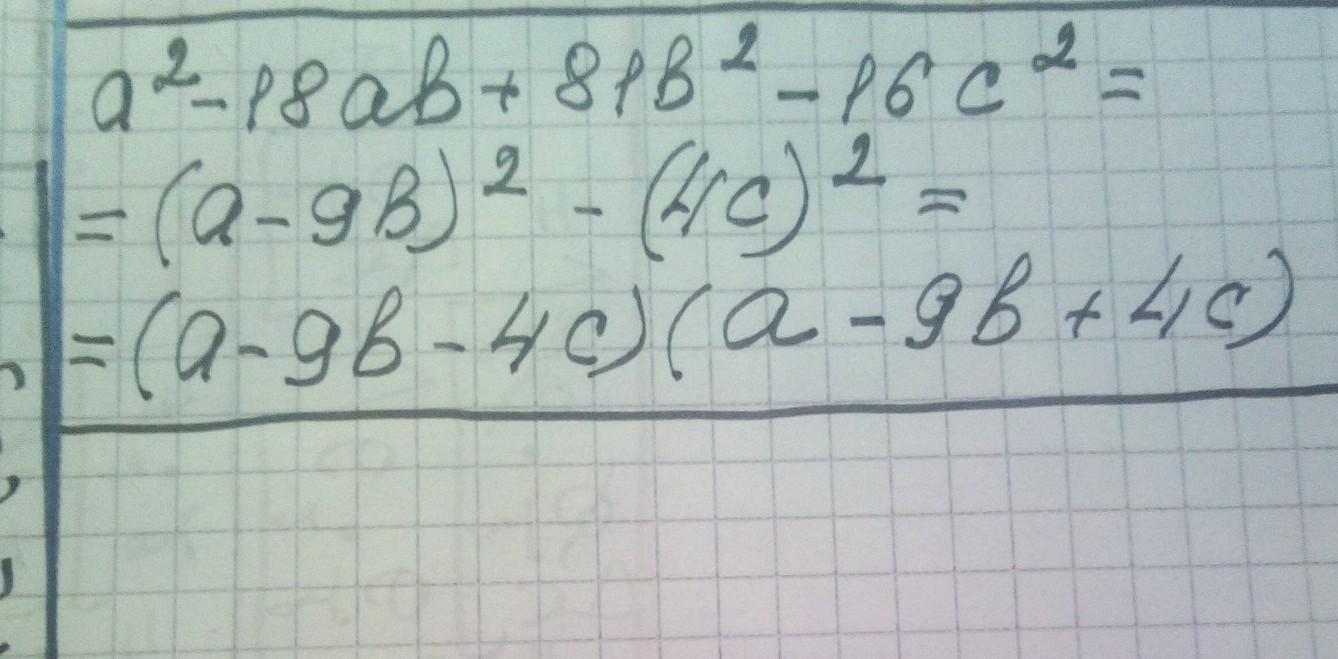 a² - 18ab + 81b² - 16c² =
= (a - 9b)² - (4c)² =
= (a - 9b - 4c)(a - 9b + 4c)